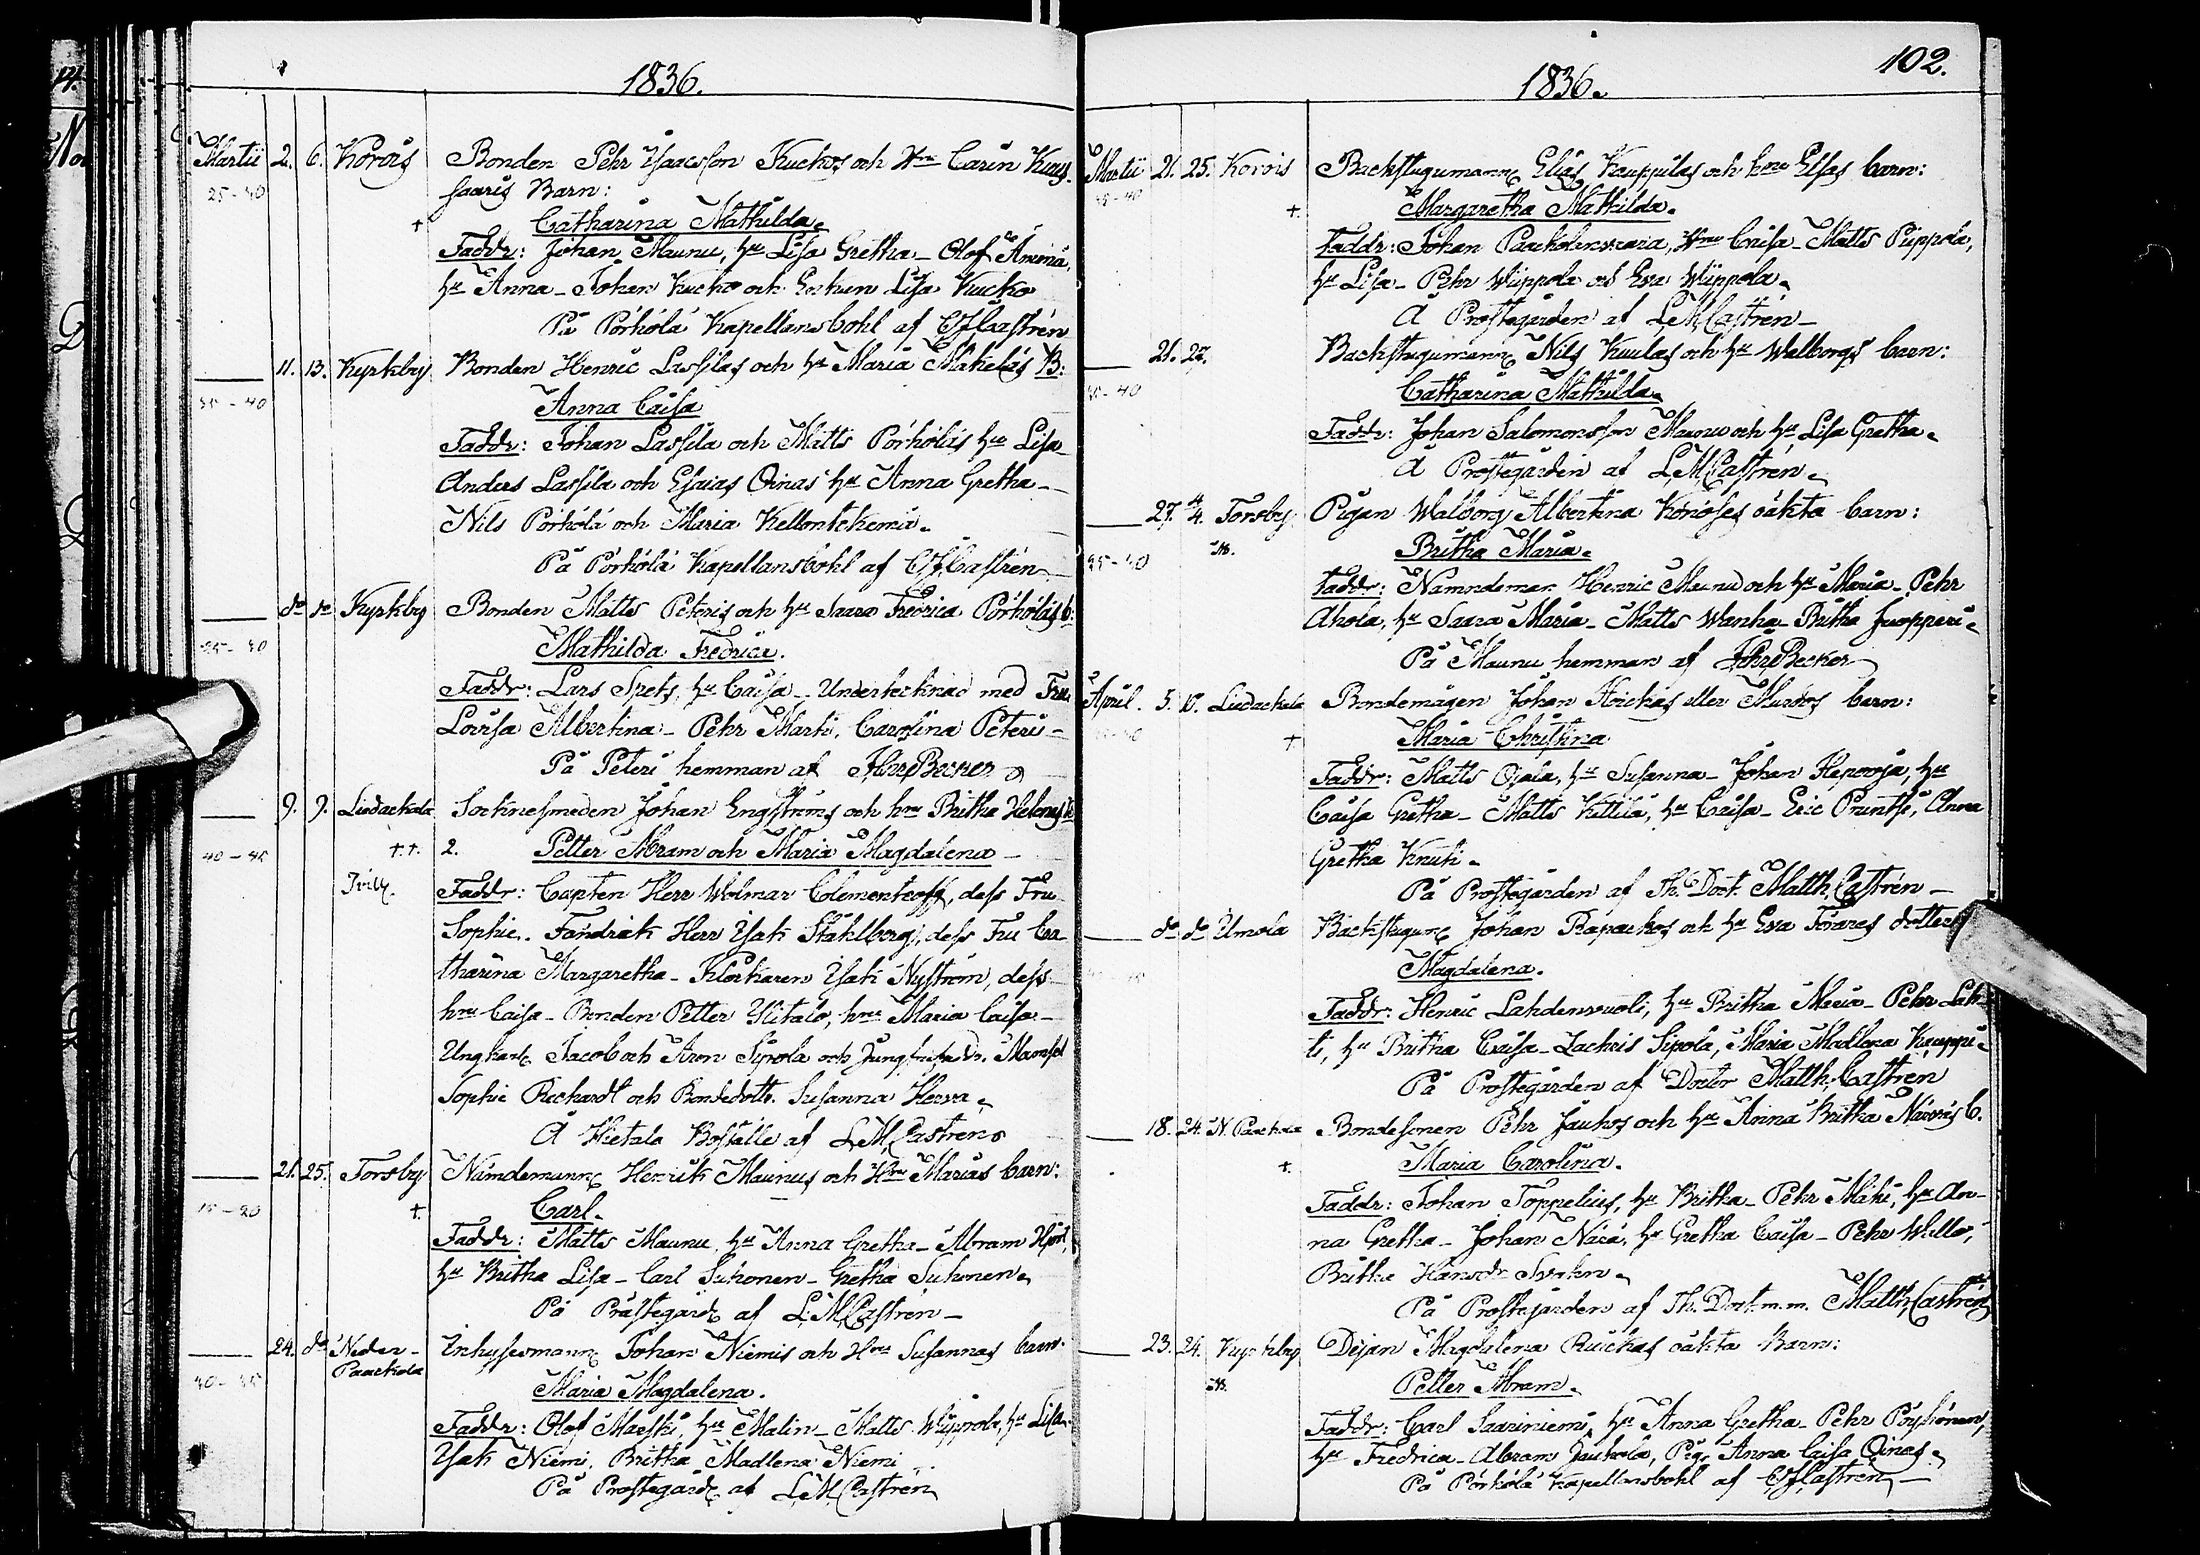 1836.
Martii 2. 6. Korois Bonden Pehr Isacsson Kuckos och Hru Carin Kuus-
25-40 saaris Barn:
+ Catharina Mathilda.
Faddr: Johan Maunu, hu Lisa Gretha - Olof
hu Anna - Johan Kucko och Lisa Kucko
På Pörhölä Kapellansbohl af Castrén
11. 13. Kyrkby Bonden Henric Lassilas och hu Maria Mäkeläs B:
35-40 Anna Caisa
Faddr: Johan Lassila och Matts Pörhöläs hu Lisa
Anders Lassila och Esaias Oinas hu Anna Gretha -
Nils Pörhölä och Maria Kellontekemiä.
På Pörhölä Kapellansbohl af Castrén
do do Kyrkby Bonden Matts Peteris och hu Saara Fredrica Pörhöläs b:
Mathilda Fredrica.
Faddr: Lars Spets, hu Caisa - Undertecknad med Fru
Lovisa Albertina - Pehr Marti, Carolina Peteri -
På Peteri hemman af Becker
9. 9. Liedackala Socknesmeden Johan Engströms och hru Britha Helenas
40-45 +.+. 2. Petter Abram och Maria Magdalena -
Faddr: Capten Herr Wolmar Clementeoff, dess Fru
Sophie. Fändrick Herr Isak Ståhlberg, dess Fru Ca-
tharina Margaretha - Klockaren Isak Nyström, dess
hru Caisa - Bonden Petter Ylitalo, hru Maria Caisa -
Ungkarl. Jacob och Aron Sipola och Mamsel
Sophie Richardt och Bondedottr. Susanna Herva.
Å Hietala Boställe af L.M. Castrén
21. 25. Torsby Nämdemann Henrik Maunus och Hru Marias barn:
15-20 +. Carl.
Faddr: Matts Maunu, hu Anna Gretha - Abram
hu Britha Lisa - Carl Suhonen - Gretha Suhonen.
På Prästegård af L.M. Castrén -
24. do Neder- Inhysesmann Johan Niemis och Hru Susannas barn.
Paackola
Maria Magdalena.
Faddr: Olof hu Malin - Matts Wippola, hu Lisa
Isak Niemi. Britha Madlena Niemi
På Prostegård af L.M. Castrén
102.
1836.
Martii 21. 25. Korois Backstugumann Elias Kauppilas och hru Elsas barn:
+. Margaretha Mathilda.
Faddr: Johan Paackolanvaara, Hru Caisa - Matts Pippola,
hu Lisa - Pehr Wippola och Eva Wippola.
Å Prostegården af L.M. Castrén -
21. 27. Backstugumann Nils Kuulas och hu Walborgs barn:
Catharina Mathilda.
Faddr: Johan Salomonsson Maunu och hu Lisa Gretha.
Å Prostegården af L.M. Castrén.
27. 4/4. Torsby Pigan Walborg Albertina oäkta barn:
Britha Maria.
Faddr: Nämndeman Henric Maunu och hu Maria - Pehr
Ahola, hu Saara Maria - Matts Wanha - Britha Juopperi.
På Maunu hemman af Becker
April. 5. 10. Liedackala Bondemågen Johan eller barn:
+ Maria Christina
Faddr: Matts Ojala, hu Susanna - Johan Hepooja, hu
Caisa Gretha - Matts Kittilä, hu Caisa - Eric Anna
Gretha Knuti.
På Prostegården af Th. Doct. Matth. Castrén -
do do Umola Backstugum. Johan Räpackos och hu Eva dotter
Magdalena.
Faddr: Henric Lahdenvuoli, hu Britha Maria - Pehr Lah-
ti, hu Britha Caisa - Zachris Sipola, Maria Madlena Kauppi.
På Prostegården af Doctor Matth. Castrén
18. 24. N. Paackola Bondesonen Pehr Jauhos och hu Anna Britha b.
+. Maria Carolina.
Faddr: Johan Toppelius, hu Britha - Pehr hu An-
na Gretha - Johan Närä, hu Gretha Caisa - Pehr
Britha
På Prostegården af Th. Doct. m.m. Matth. Castrén
23. 24. Kyrkby Dejan Magdalena Ruickas oäkta Barn:
Petter Abram.
Faddr: Carl Saariniemi, hu Anna Gretha - Pehr Pöyhönen,
hu Fredrica - Abram Jauhola, Pig. Anna Caisa Oinas.
På Pörhölä Kapellansbohl af Castrén -